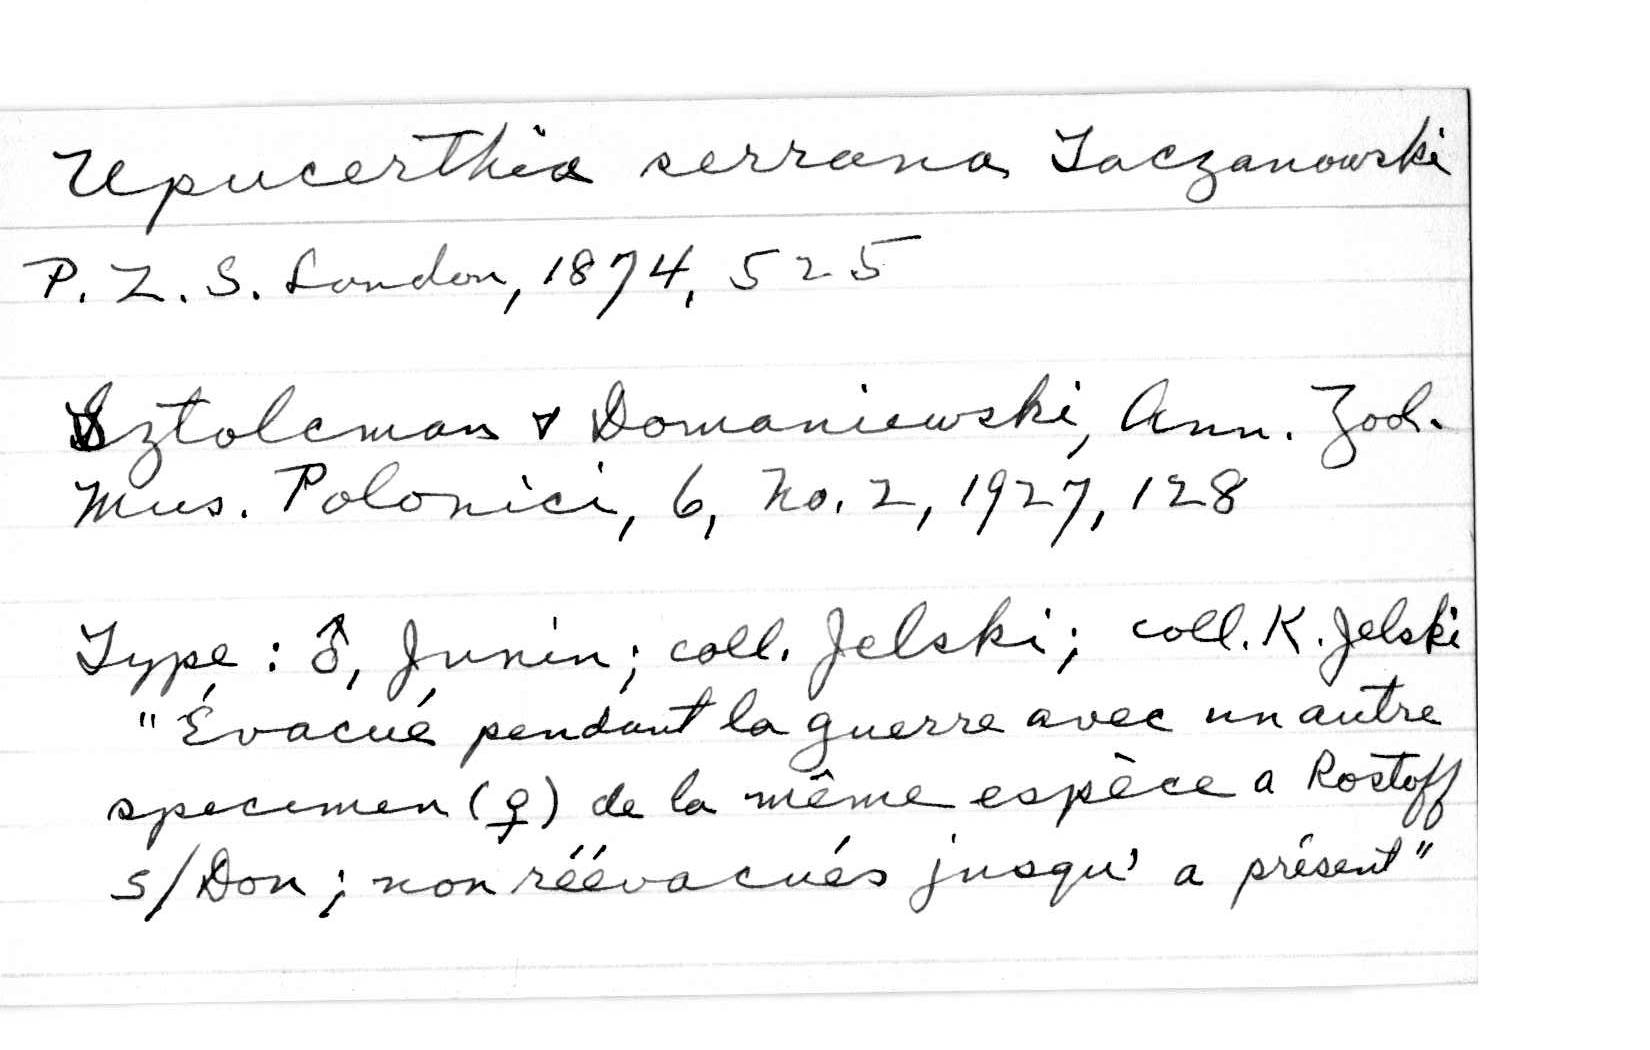 Upucerthia serrana Taczanowski
P. Z. S. London, 1874, 525
Sztolcman & Domaniewski, Ann. Zool.
Mus. Polonici, 6, No. 2, 1927, 128
Type : ♂, Junin; coll. Jelski; coll. K. Jelski
"Évacué pendant la guerre avec un autre
specimen (♀) de la même espèce a Rostoff
s/Don; non réévacués jusqu' a présent"